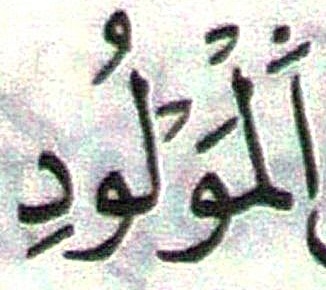 اَلْمَوْلُودِ